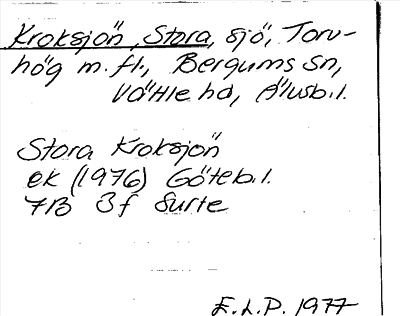 Kroksjön, Stora, sjö, Torv-
hög m.fl., Bergums sn,
Vättle hd, Älvsb.l.
Stora Kroksjön
ek (1976) Göteb.l.
7B 3f Surte
E.L.P. 1977